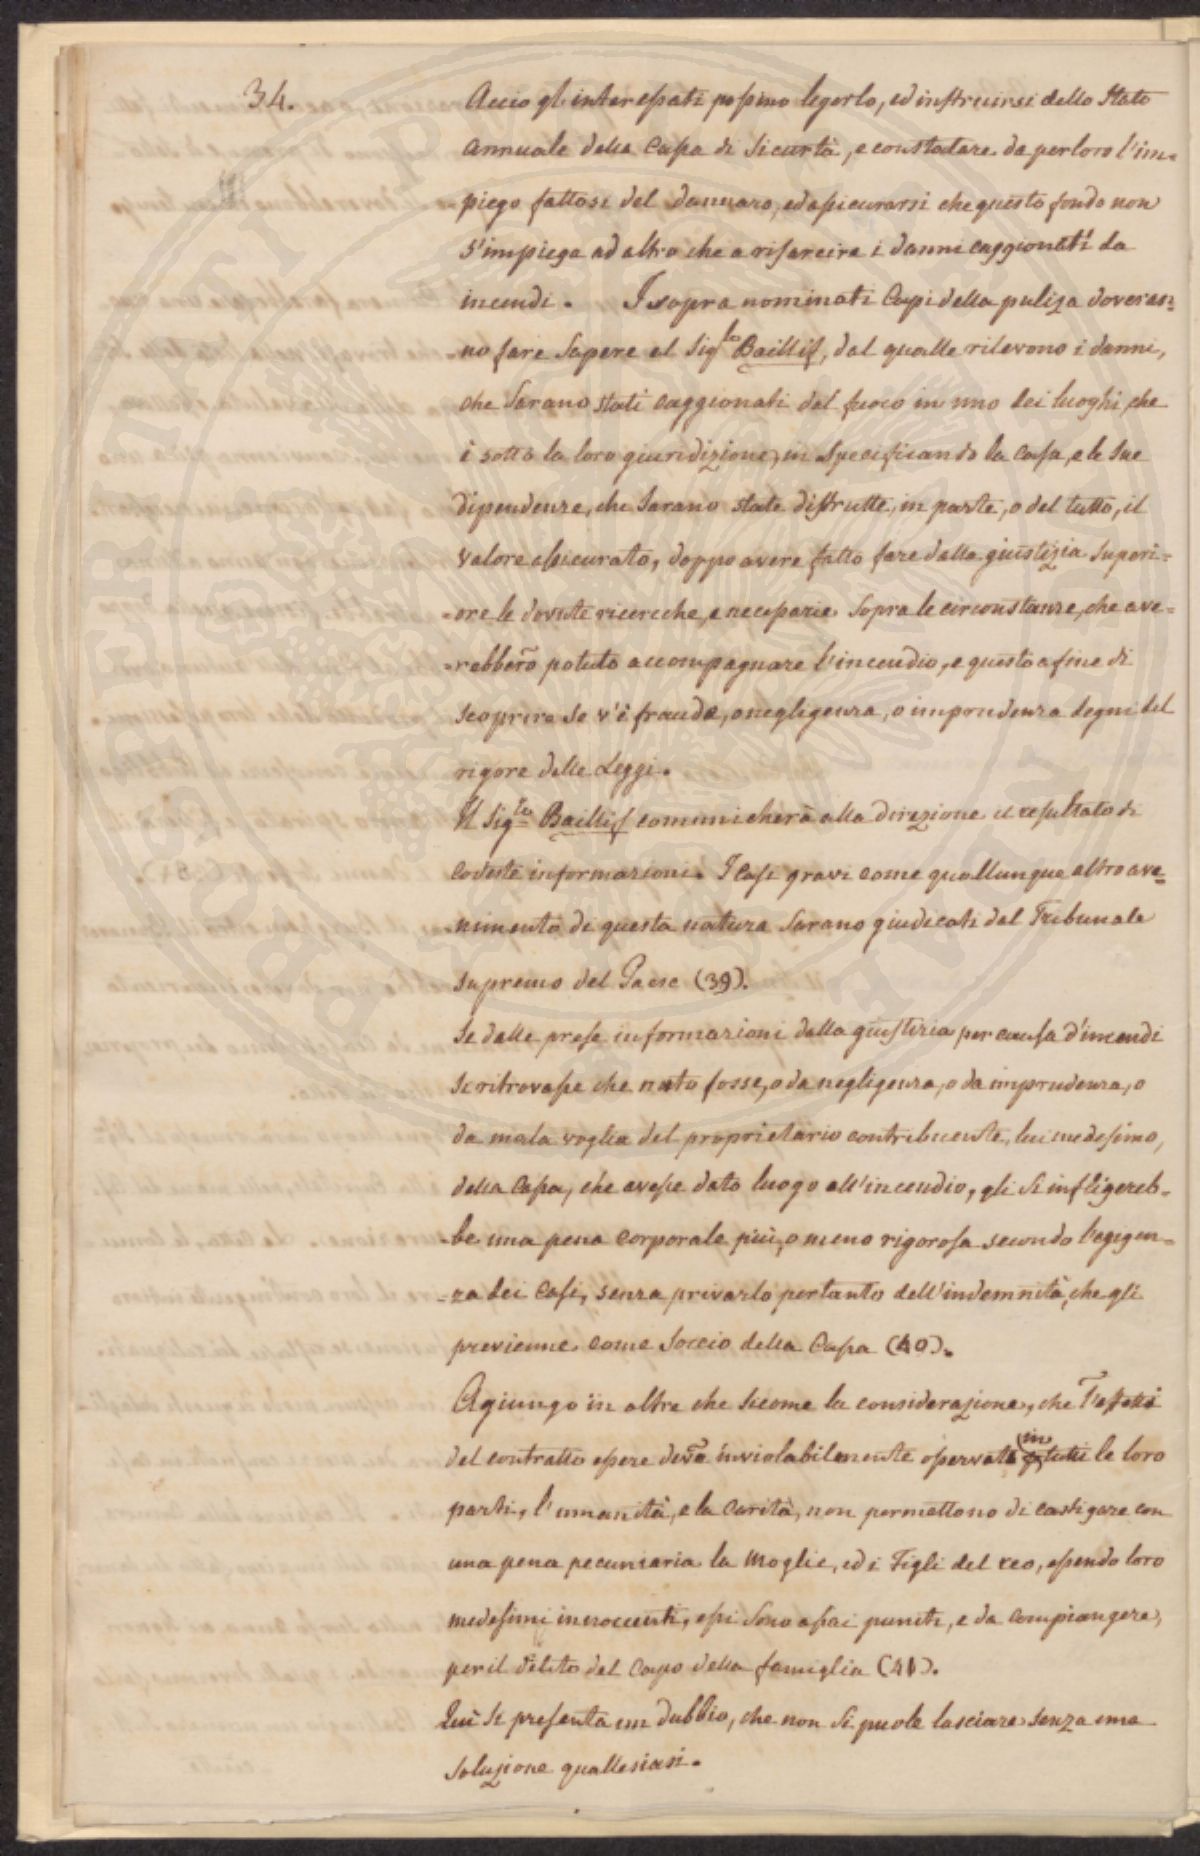 34.
Accio gl'interessati possino legerlo, ed instruirsi dello Stato
annuale della Cassa di Sicurtà, e constatare da perloro l'im=
piego fattosi del dannaro, ed assicurarsi che questo fondo non
s'impiega ad altro che a risarcire i danni caggionati da
incendi. I sopra nominati Capi della puliza doveran=
no fare Sapere al Sig.to Baillif, dal qualle rilevono i danni,
che Sarano stati caggionati dal fuoco in uno dei luoghi, che
è sotto la loro giuridizione, in Specificando la Casa, e le Sue
dipendenze, che Sarano state distrutte, in parte, o del tutto, il
valore assicurato, doppo avere fatto fare dalla giustizia Superi=
=ore le dovute ricerche, e necessarie Sopra le circonstanze, che ave=
=rebbero potuto accompagnare l'incendio, e questo a fine di
scoprire Se v'è fraude, o negligenza, o imprudenza degni del
rigore delle Leggi.
Il Sig.to Baillif communicherà alla direzione il resultato di
codeste informazioni. I Casi gravi come quallunque altro ave=
=nimento di questa natura Sarano giudicati dal Tribunale
Supremo del Paese (39).
Se dalle prese informazioni dalla giustizia per causa d'incendi
Se ritrovasse che nato fosse, o da negligenza, o da imprudenza, o
da mala voglia del proprietario contribuente, lui medesimo,
della Cassa, che avesse dato luogo all'incendio, gli Si infligereb=
=be una pena corporale più, o meno rigorosa secondo l'egigen=
=za dei Casi, senza privarlo pertanto dell'indemnità, che gli
previenne come Soccio della Cassa (40).
Agiungo in oltre che Sicome la considerazione, che l'effetti
del contratto essere devo inviolabilmente osservato in tutti le loro
parti, l'umanità, e la Carità, non permettono di castigare con
una pena pecuniaria la Moglie, ed i Figli del reo, essendo loro
medesimi innoccenti, essi Sono assai puniti, e da compiangere,
per il delito del Capo della famiglia (41).
Qui Si presenta un dubbio, che non Si puole lasciare senza una
Soluzione quallesiasi.